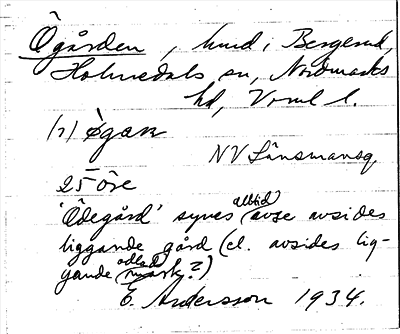 Ögården, hmd i Bergerud,
Holmedals sn, Nordmarks
hd, Vrml l.
(1) øgan
NV Länsmansg.
25 öre
'Ödegård' synes alltid avse avsides
liggande gård (el. avsides lig-
gande odlad mark?)
E. Andersson 1934.